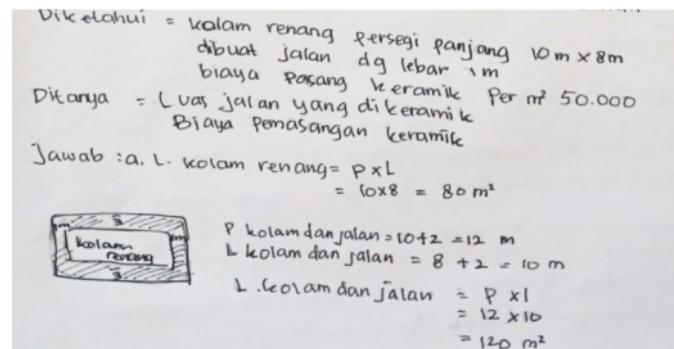 Diketahui = kolam renang persegi panjang 10 m x 8m
dibuat jalan dg lebar 1 m
biaya pasang keramik Per m² 50.000
Ditanya = Luas jalan yang dikeramik
Biaya Pemasangan keramik
Jawab : a. L. kolam renang = P x L
= 10x8 = 80 m²
kolam
renang
P kolam dan jalan = 10+2 = 12 m
L kolam dan jalan = 8 + 2 = 10 m
L. kolam dan jalan = P x l
= 12 x 10
= 120 m²